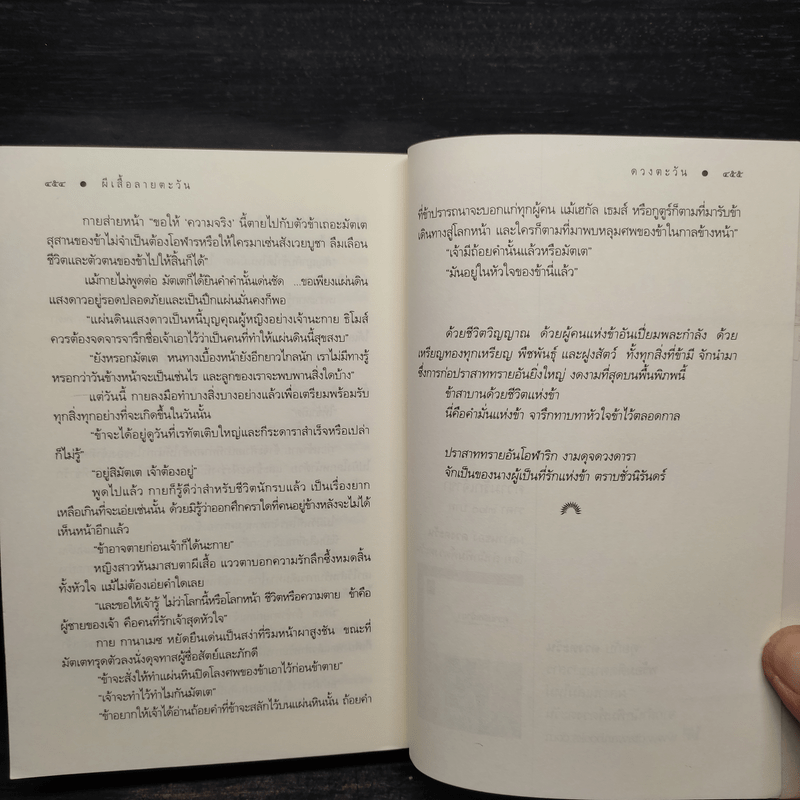 ๔๕๔ ● ผีเสื้อลายตะวัน
กายส่ายหน้า "ขอให้ 'ความจริง' นี้ตายไปกับตัวข้าเถอะมัตเต
สุสานของข้าไม่จำเป็นต้องโอฬารหรือให้ใครมาเซ่นสังเวยบูชา ลืมเลือน
ชีวิตและตัวตนของข้าไปให้สิ้นก็ได้"
แม้กายไม่พูดต่อ มัตเตก็ได้ยินคำคำนั้นเด่นชัด ...ขอเพียงแผ่นดิน
แสงดาวอยู่รอดปลอดภัยและเป็นปึกแผ่นมั่นคงก็พอ
"แผ่นดินแสงดาวเป็นหนี้บุญคุณผู้หญิงอย่างเจ้านะกาย ธิโมส์
ควรต้องจดจารจารึกชื่อเจ้าเอาไว้ว่าเป็นคนที่ทำให้แผ่นดินนี้สุขสงบ"
"ยังหรอกมัตเต หนทางเบื้องหน้ายังอีกยาวไกลนัก เราไม่มีทางรู้
หรอกว่าวันข้างหน้าจะเป็นเช่นไร และลูกของเราจะพบพานสิ่งใดบ้าง"
แต่วันนี้ กายลงมือทำบางสิ่งบางอย่างแล้วเพื่อเตรียมพร้อมรับ
ทุกสิ่งทุกอย่างที่จะเกิดขึ้นในวันนั้น
"ข้าจะได้อยู่ดูวันที่เรทัตเติบใหญ่และกีระดาราสำเร็จหรือเปล่า
ก็ไม่รู้"
"อยู่สิมัตเต เจ้าต้องอยู่"
พูดไปแล้ว กายก็รู้ดีว่าสำหรับชีวิตนักรบแล้ว เป็นเรื่องยาก
เหลือเกินที่จะเอ่ยเช่นนั้น ด้วยมิรู้ว่าออกศึกคราใดที่คนอยู่ข้างหลังจะไม่ได้
เห็นหน้าอีกแล้ว
"ข้าอาจตายก่อนเจ้าก็ได้นะกาย"
หญิงสาวหันมาสบตาผีเสื้อ แววตาบอกความรักลึกซึ้งหมดสิ้น
ทั้งหัวใจ แม้ไม่ต้องเอ่ยคำใดเลย
"และขอให้เจ้ารู้ ไม่ว่าโลกนี้หรือโลกหน้า ชีวิตหรือความตาย ข้าคือ
ผู้ชายของเจ้า คือคนที่รักเจ้าสุดหัวใจ"
กาย กานาเมซ หยัดยืนเด่นเป็นสง่าที่ริมหน้าผาสูงชัน ขณะที่
มัตเตทรุดตัวลงนั่งดุจทาสผู้ซื่อสัตย์และภักดี
"ข้าจะสั่งให้ทำแผ่นหินปิดโลงศพของข้าเอาไว้ก่อนข้าตาย"
"เจ้าจะทำไว้ทำไมกันมัตเต"
"ข้าอยากให้เจ้าได้อ่านถ้อยคำที่ข้าจะสลักไว้บนแผ่นหินนั้น ถ้อยคำ
ดวงตะวัน ● ๔๕๕
ที่ข้าปรารถนาจะบอกแก่ทุกผู้คน แม้เฮกัล เชมส์ หรือกูตูร์ก็ตามที่มารับข้า
เดินทางสู่โลกหน้า และใครก็ตามที่มาพบหลุมศพของข้าในกาลข้างหน้า"
"เจ้ามีถ้อยคำนั้นแล้วหรือมัตเต"
"มันอยู่ในหัวใจของข้านี่แล้ว"
ด้วยชีวิตวิญญาณ ด้วยผู้คนแห่งข้าอันเปี่ยมพละกำลัง ด้วย
เหรียญทองทุกเหรียญ พืชพันธุ์ และฝูงสัตว์ ทั้งทุกสิ่งที่ข้ามี จักนำมา
ซึ่งการก่อปราสาททรายอันยิ่งใหญ่ งดงามที่สุดบนพื้นพิภพนี้
ข้าสาบานด้วยชีวิตแห่งข้า
นี่คือคำมั่นแห่งข้า จารึกทาบทาหัวใจข้าไว้ตลอดกาล
ปราสาททรายอันโอฬาริก งามดุจดวงดารา
จักเป็นของนางผู้เป็นที่รักแห่งข้า ตราบชั่วนิรันดร์